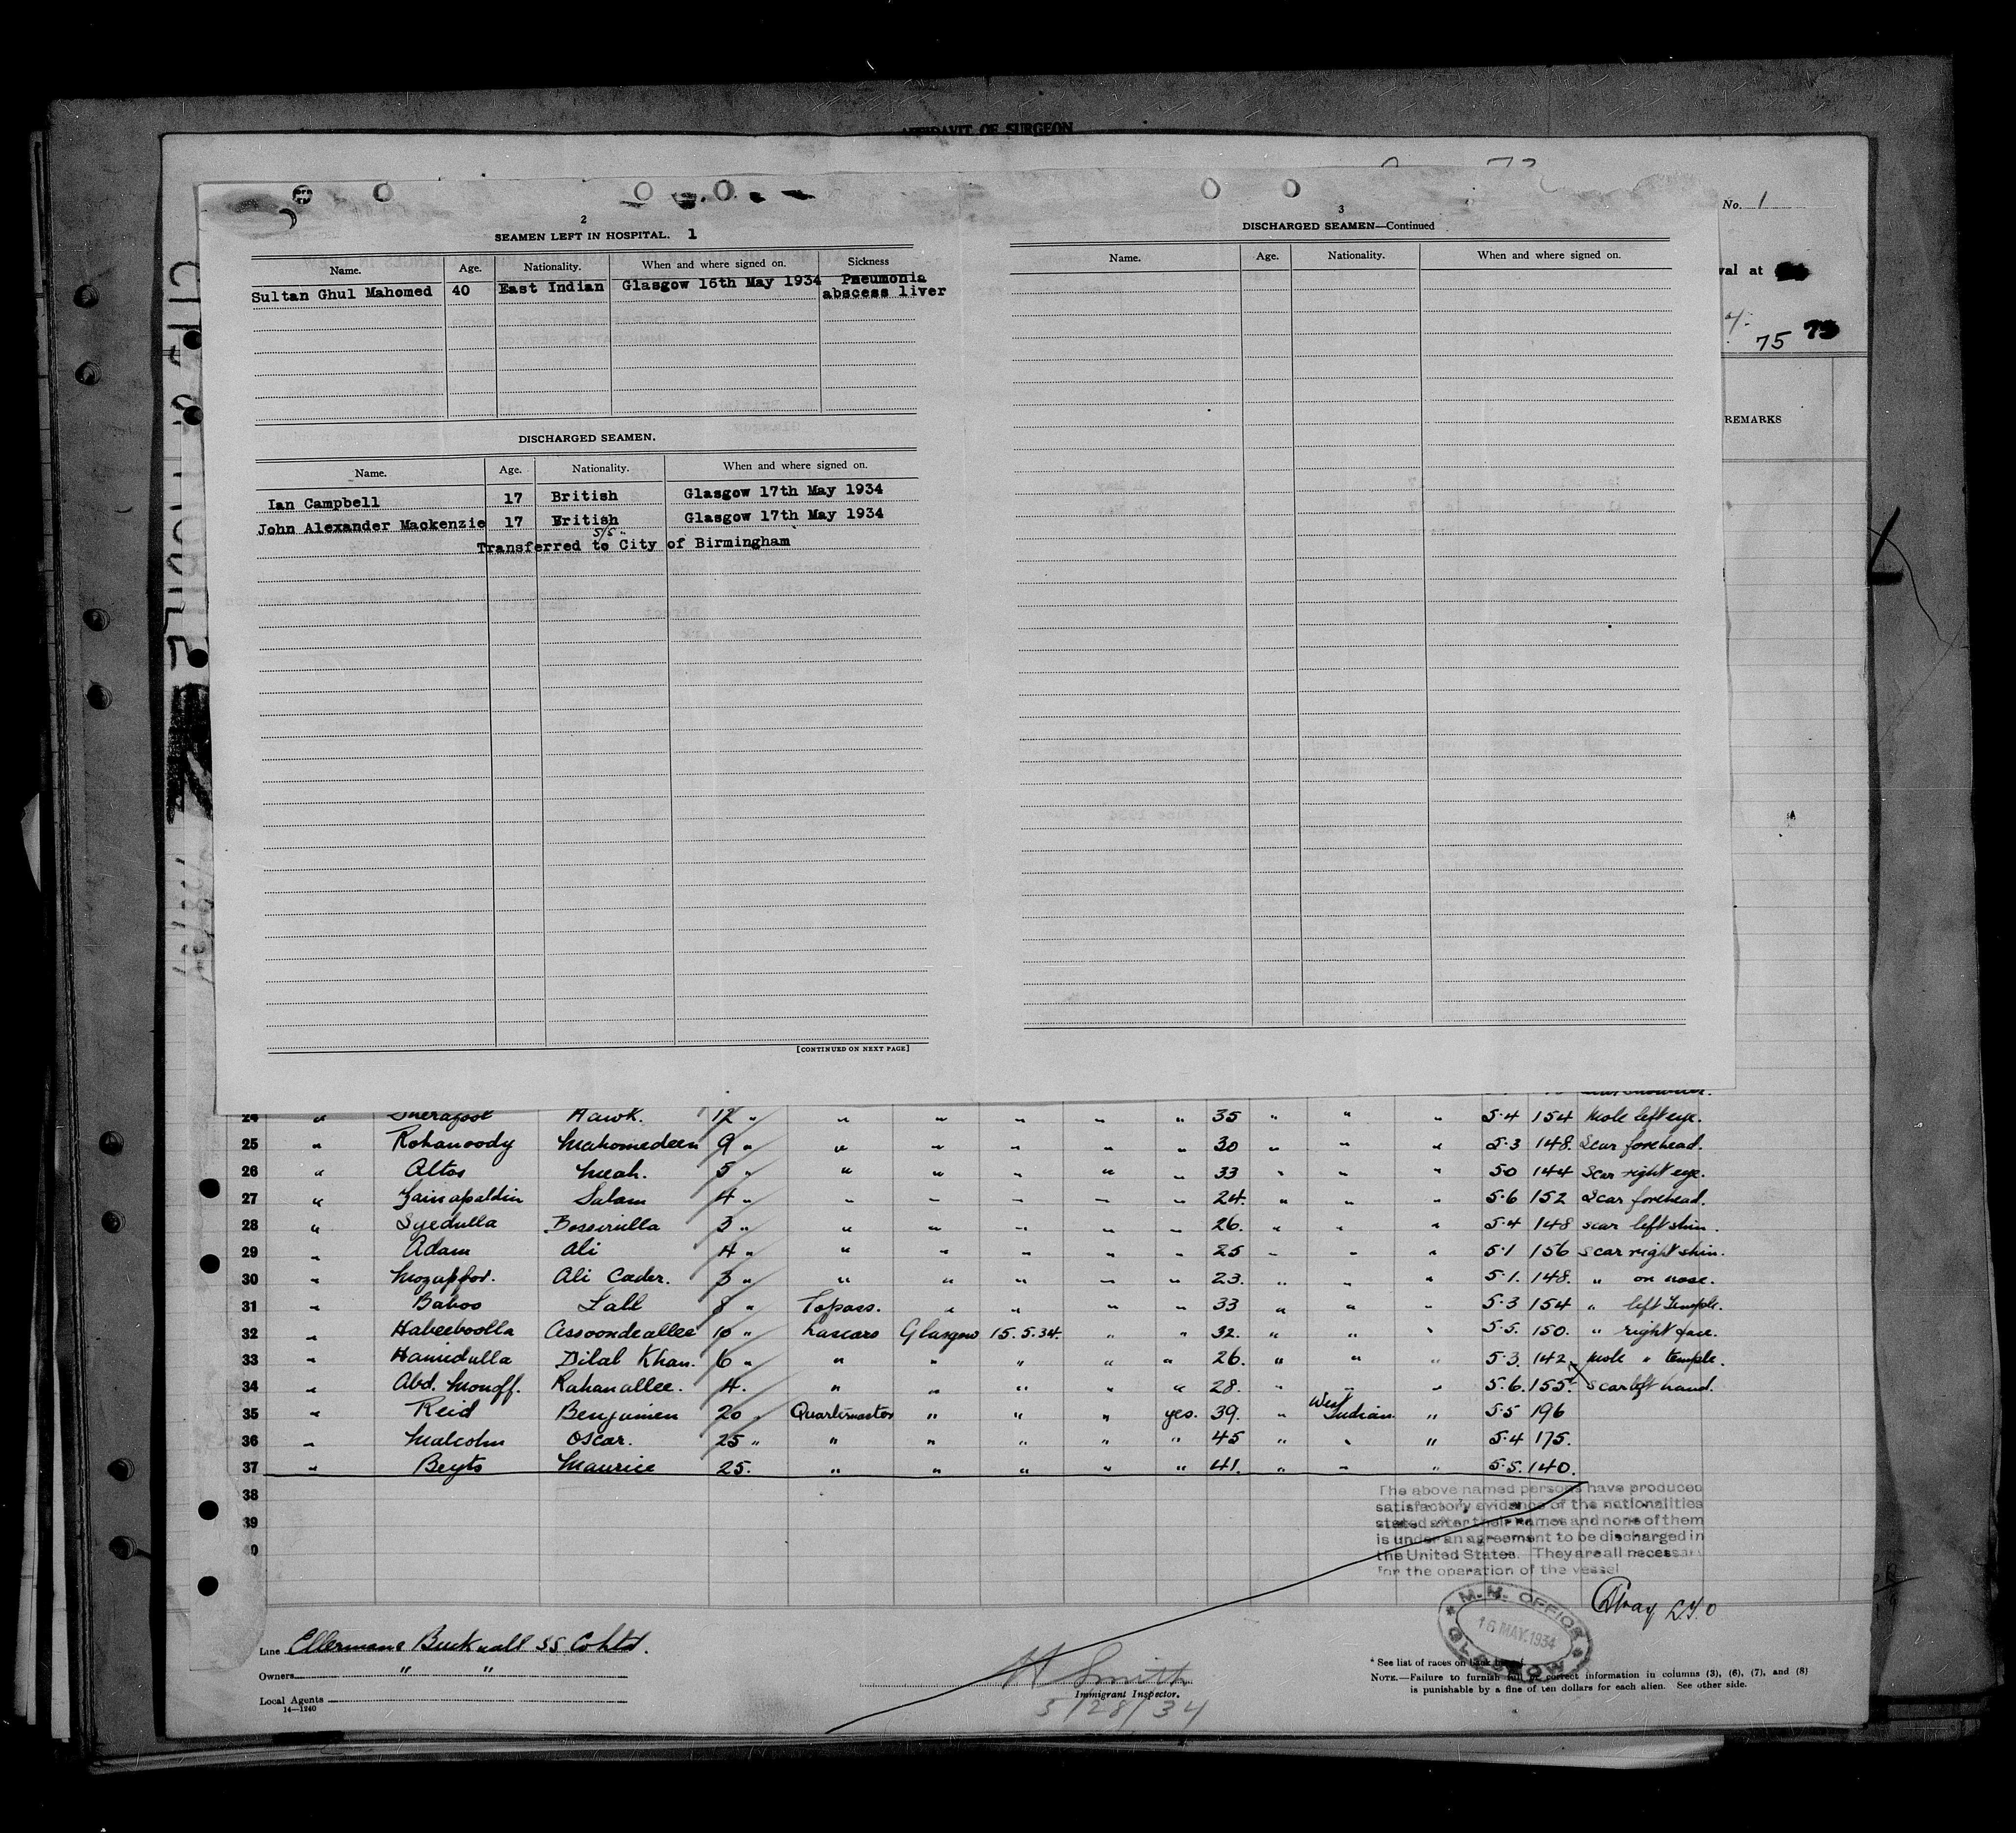 AFFIDAVIT OF SURGEON
No. 1
val at
75 75
REMARKS
2
SEAMEN LEFT IN HOSPITAL. 1
Name. Age. Nationality. When and where signed on. Sickness
Sultan Ghul Mahomed 40 East Indian Glasgow 16th May 1934 Pneumonia
abscess liver
DISCHARGED SEAMEN.
Name. Age. Nationality. When and where signed on.
Ian Campbell 17 British Glasgow 17th May 1934
John Alexander Mackenzie 17 British Glasgow 17th May 1934
S/S
Transferred to City of Birmingham
[CONTINUED ON NEXT PAGE]
3
DISCHARGED SEAMEN—Continued
Name. Age. Nationality. When and where signed on.
24 " Sherafoot Hawk. 12 " " " " " " 35 " " " 5.4 154 Mole left eye.
25 " Rohanoody Mahomedeen 9 " " " " " " 30 " " " 5.3 148. Scar forehead.
26 " Altos Meah. 5 " " " " " " 33 " " " 50 144 Scar right eye.
27 " Zainapaldin Salam 4 " " " " " " 24. " " " 5.6 152 Scar forehead.
28 " Syedulla Bossirulla 3 " " " " " " 26. " " " 5.4 148 scar left shin.
29 " Adam Ali 4 " " " " " " 25 " " " 5.1 156 scar right shin.
30 " Mozuffor. Ali Cader. 3 " " " " " " 23. " " " 5.1. 148. " on nose.
31 " Baboo Lall 8 " Topass. " " " " 33 " " " 5.3 154 " left Temple.
32 " Habeeboolla Assoondeallee 10 " Lascars Glasgow 15.5.34. " " 32. " " " 5.5. 150. " right face.
33 " Hamidulla Dilal Khan. 6 " " " " " " 26. " " " 5.3. 142. Mole " temple.
34 " Abd. Monoff. Rahanallee. 4. " " " " " 28. " " " 5.6. 155. Scar left hand.
35 " Reid Benjamien 20 " Quartermaster " " " yes. 39. " West Indian. " 5.5 196
36 " Malcolm Oscar. 25 " " " " " " 45 " " " 5.4 175.
37 " Beyts Maurice 25. " " " " " 41. " " " 5.5. 140.
38
39
0
The above named persons have produced
satisfactory evidence of the nationalities
stated after their names and none of them
is under an agreement to be discharged in
the United States. They are all necessary
for the operation of the vessel
M.M. OFFICE
16 MAY.1934
GLASGOW
Line Ellermans Bucknall SS Co Ltd.
Owners " "
Local Agents
14—1240
H Smith
Immigrant Inspector.
5/28/34
* See list of races on back
NOTE.—Failure to furnish full or correct information in columns (3), (6), (7), and (8)
is punishable by a fine of ten dollars for each alien. See other side.